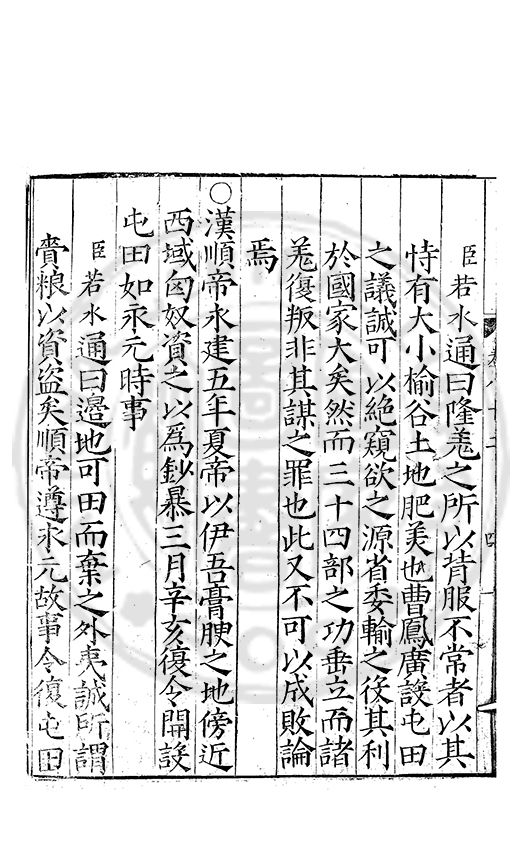 臣若水通曰隆羌之所以背服不常者以其
恃有大小榆谷土地肥美也曹鳳廣設屯田
之議誠可以絕窺欲之源省委輸之役其利
於國家大矣然而三十四部之功垂立而諸
羌復叛非其謀之罪也此又不可以成敗論
焉
○漢順帝永建五年夏帝以伊吾膏腴之地傍近
西域匈奴資之以爲鈔暴三月辛亥復令開設
屯田如永元時事
臣若水通曰邊地可田而棄之外夷誠所謂
賫粮以資盜矣順帝遵永元故事令復屯田